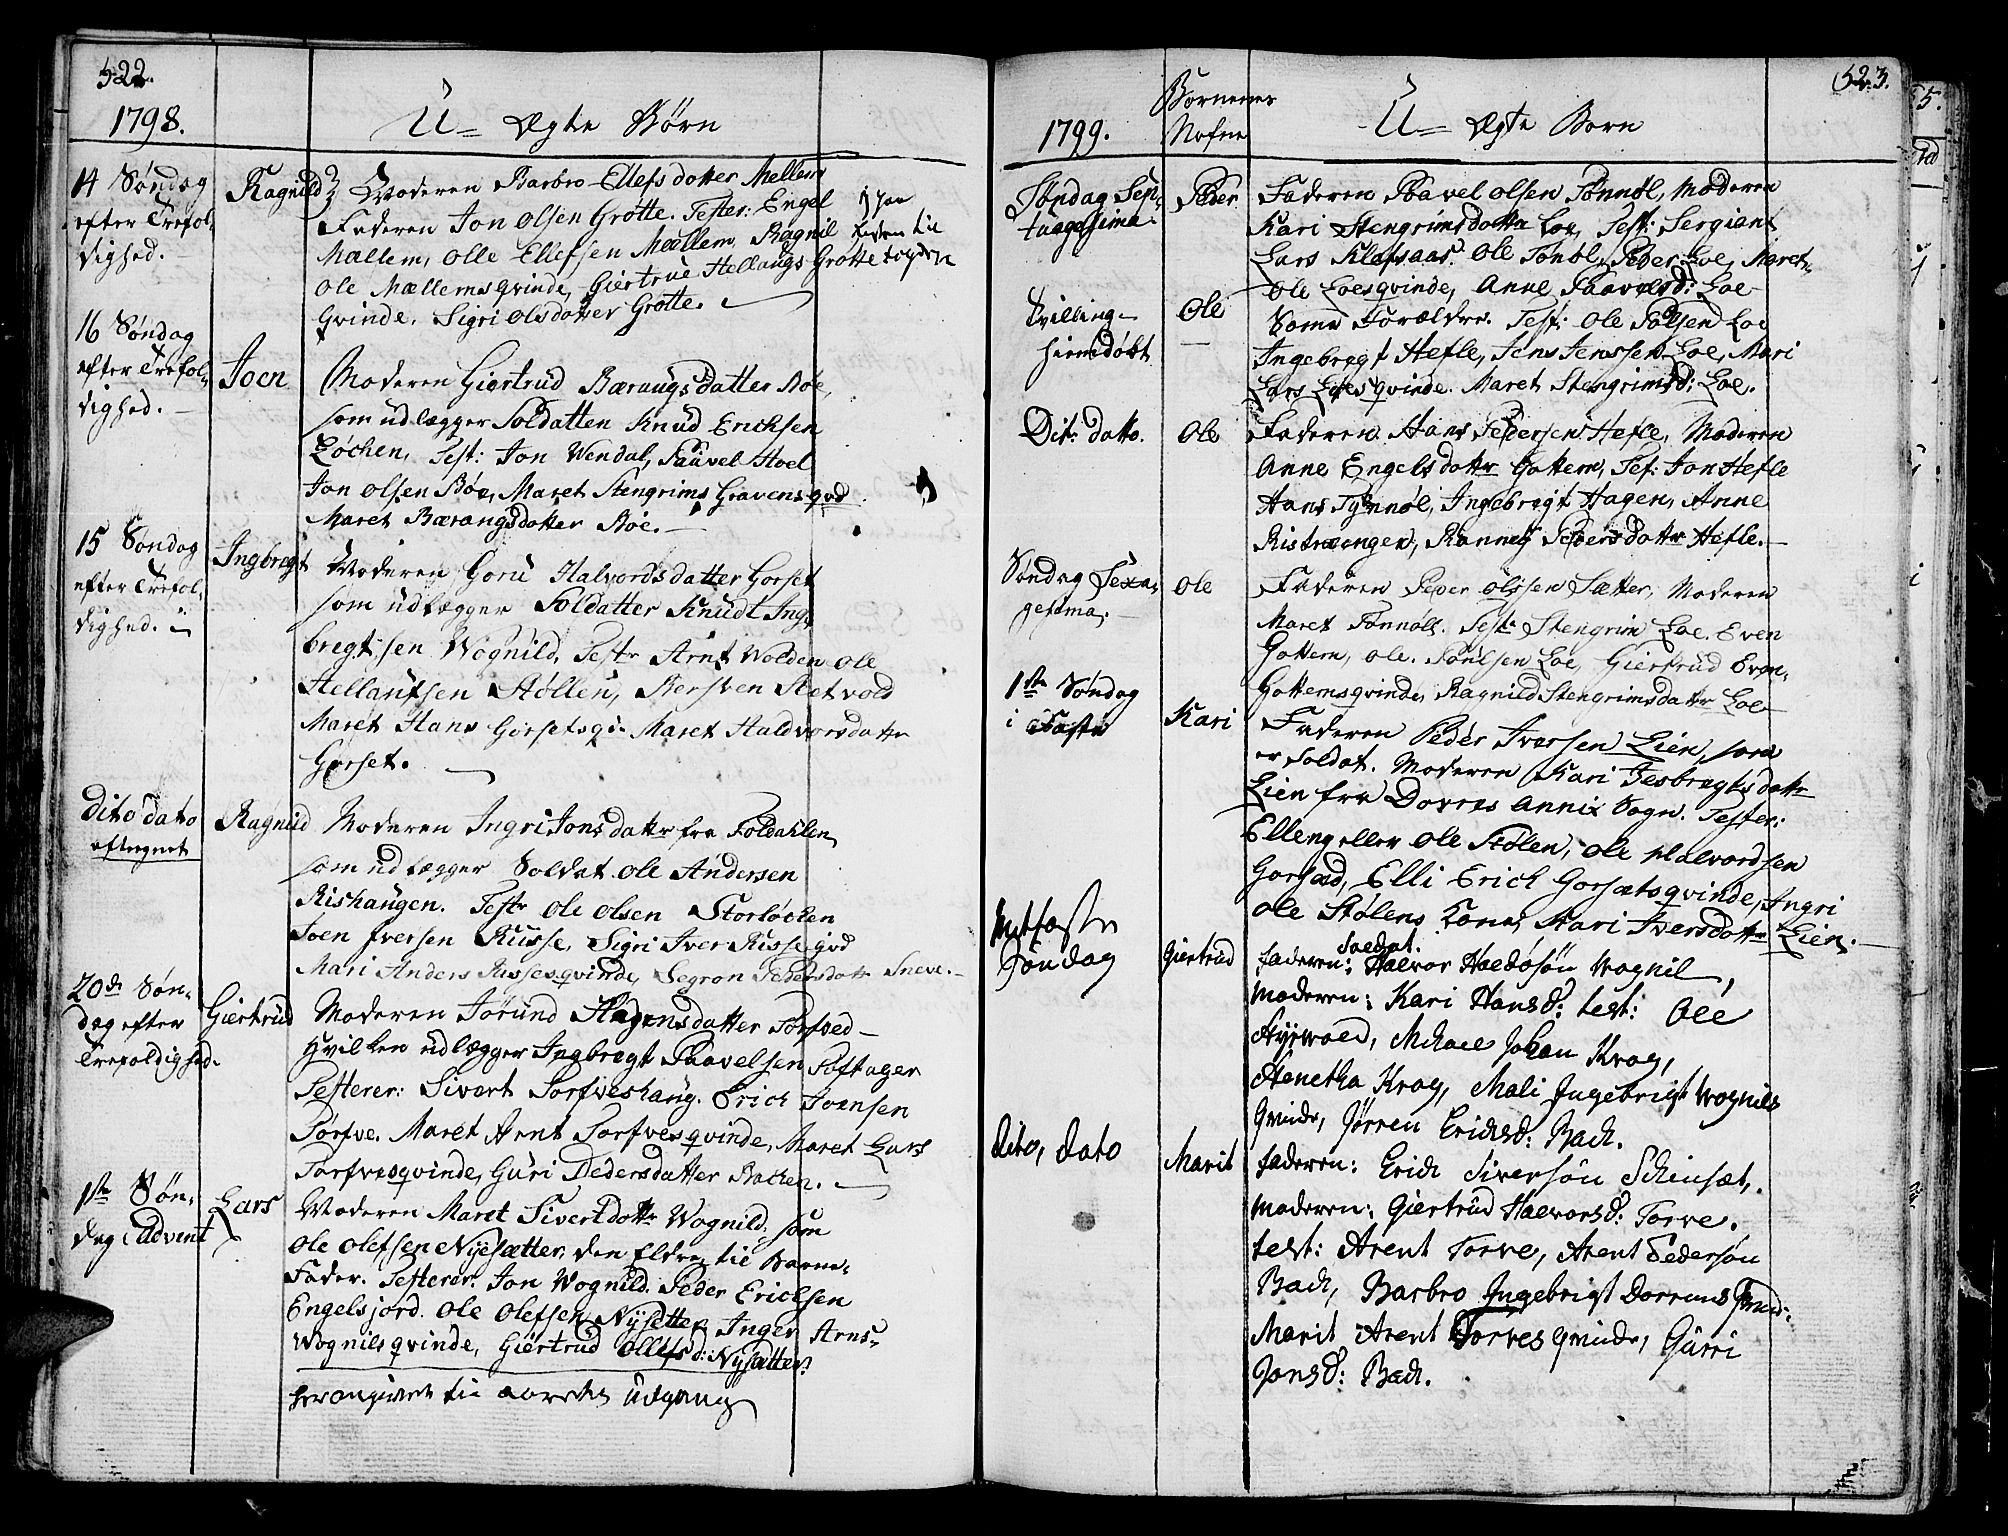 522.
1798.
U- Ægte Børn
14 Søndag
efter Trefol-
dighed.
Ragnild
Moderen Barbro Ellefsdotter Mellem
Faderen Jon Olsen Grøtte. Tester: Engel
Mællem, Olle Ellefsen Mællem, Ragnil
Ole Mællemsqvinde, Giertrue Hellaugs Grøtte
Qvinde. Sigri Olsdotter Grøtte.
16 Søndag
efter Trefol-
dighed.
Joen
Moderen Giertrud Bæraugsdatter Bøe,
som udlægger Soldatten Knud Erichsen
Løchen, Test: Jon Wendal, Paavel Hoel
Jon Olsen Bøe, Maret Stengrims Gravens qvd
Maret Bærangsdotter Bøe.
15 Søndag
efter Trefol-
dighed.
Ingbregt
Moderen Goru Halvordsdatter Gorset
som udlægger Soldatter Knudt Ing-
bregtssen Wognild, Testr Arnt Wolden Ole
Hellaufsen Støllen, Bersven Stetvold
Maret Hans Gorsetsqv. Maret Haldvorsdattr
Gorset.
Dito dato
Ragnild
Moderen Ingri Jonsdattr fra Foldahlen
som udlægger Soldat Ole Andersen
Rishaugen. Testr Ole Olsen Storløchen
Joen Iversen Russe, Sigri Iver Russe qvd
Mari Anders Russesqvinde, Segron Pedersdattr Sneve.
20de Søn-
dag efter
Trefoldighed.
Giertrud
Moderen Jørund Hagensdatter Torfved
hvilken udlægger Ingbregt Paavelsen Toftager
Testerer: Sivert Torfveshaug. Erich Joensen
Torfve. Maret Arnt Torfvesqvinde, Maret Lars
Torfvesqvinde, Guri Pedersdatter Bachen.
1ste Søn-
dag i Advent
Lars
Moderen Maret Sivertdottr Wognild, som
Ole Olefsen Nyesætter, den Eldre, til Barne-
Fader. Testerer: Jon Wognild. Peder Erichsen
Engelsjord. Ole Olefsen Nysetter, Inger Arns-
Wognilsqvinde, Giertrud Ollefsd: Nysætter
her angivet til aarets Udgang
523.
1799.
Børnenes
Nafne
U- Ægte Børn
Søndag Sep-
tuagesima.
Peder
Faderen Paavel Olsen Tønnøl, Moderen
Kari Stengrimsdotter Loe, Test: Sergiant
Lars Klefsaas. Ole Tønøl, Peder Loe, Maret
Ole Loesqvinde, Anne Paavelsd: Loe
Tvilling-
hiemdøbt
Ole
Samme Forældre. Test: Ole Polsen Loe
Ingebregt Hefle, Jens Jenssen Loe, Mari
Lars Loesqvinde. Maret Stengrimsd: Loe.
Dito dato.
Ole
Faderen Hans Pedersen Hefle, Moderen
Anne Engelsdottr Gottem, Tes: Jon Hefle
Hans Tynnøl, Ingebregt Hagen, Anne
Ristræengen, Rannej Pedersdattr Hefle.
Søndag Sexa-
gesima.
Ole
Faderen Peder Olssen Sætter, Moderen
Maret Tønnøll. Testr Stengrim Loe. Even
Gottem, Ole Poulsen Loe, Giertrud Even
Gottemsqvinde, Ragnild Stengrimsdattr Loe
1ste Søndag
i Faste
Kari
Faderen Peder Iversen Lien, som
er Soldat. Moderen Kari Jesbregtsdattr
Lien fra Dovres Annix Sogn. Tester:
Elleng eller Ole Stølen, Ole Halvordsen
Gorsæd, Elli Erich Gorsætsqvinde, Ingri
Ole Stølens Kone, Kari Iversdattr Lien.
Midfaste
Søndag
Giertrud
Soldat.
faderen: Halvor Haldosøn Wognil,
moderen: Kari Hansd: test: Ole
Myrvold, Michael Johan Krog,
Anetha Krog, Mali Ingebrigt Wognils
Qvinde, Jørren Erichsd: Bach.
Dito, dato
Marit
faderen: Erich Siversøn Schinsæt,
moderen: Giertrud Halvorsd: Torve.
test: Arent Torve, Arent Pedersøn
Bach, Barbro Ingebrigt Dorrems Qvind:
Marit Arent Torves Qvinde, Gurri
Jonsd: Bach.